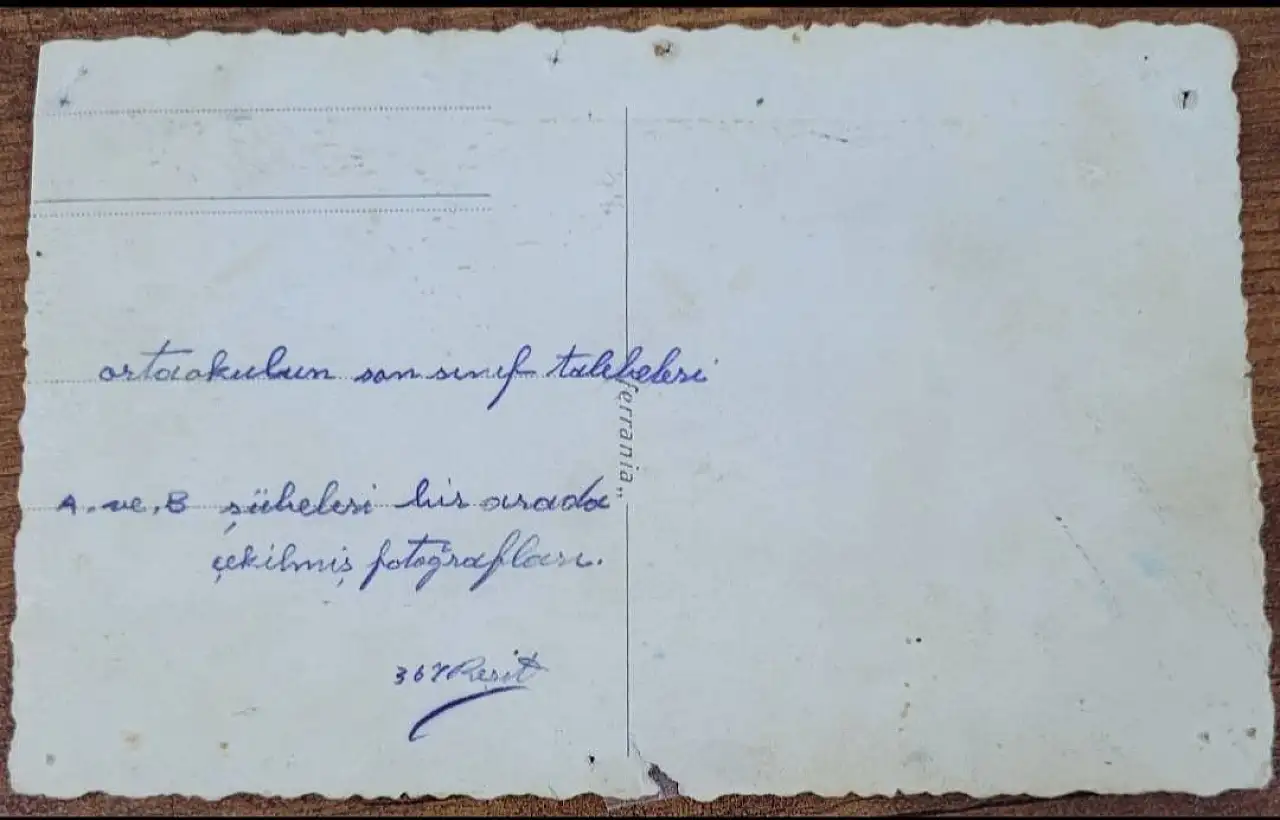 ortaokulun son sınıf talebeleri
A. ve. B şübeleri bir arada
çekilmiş fotoğrafları.
367 Reşit
ferrania„